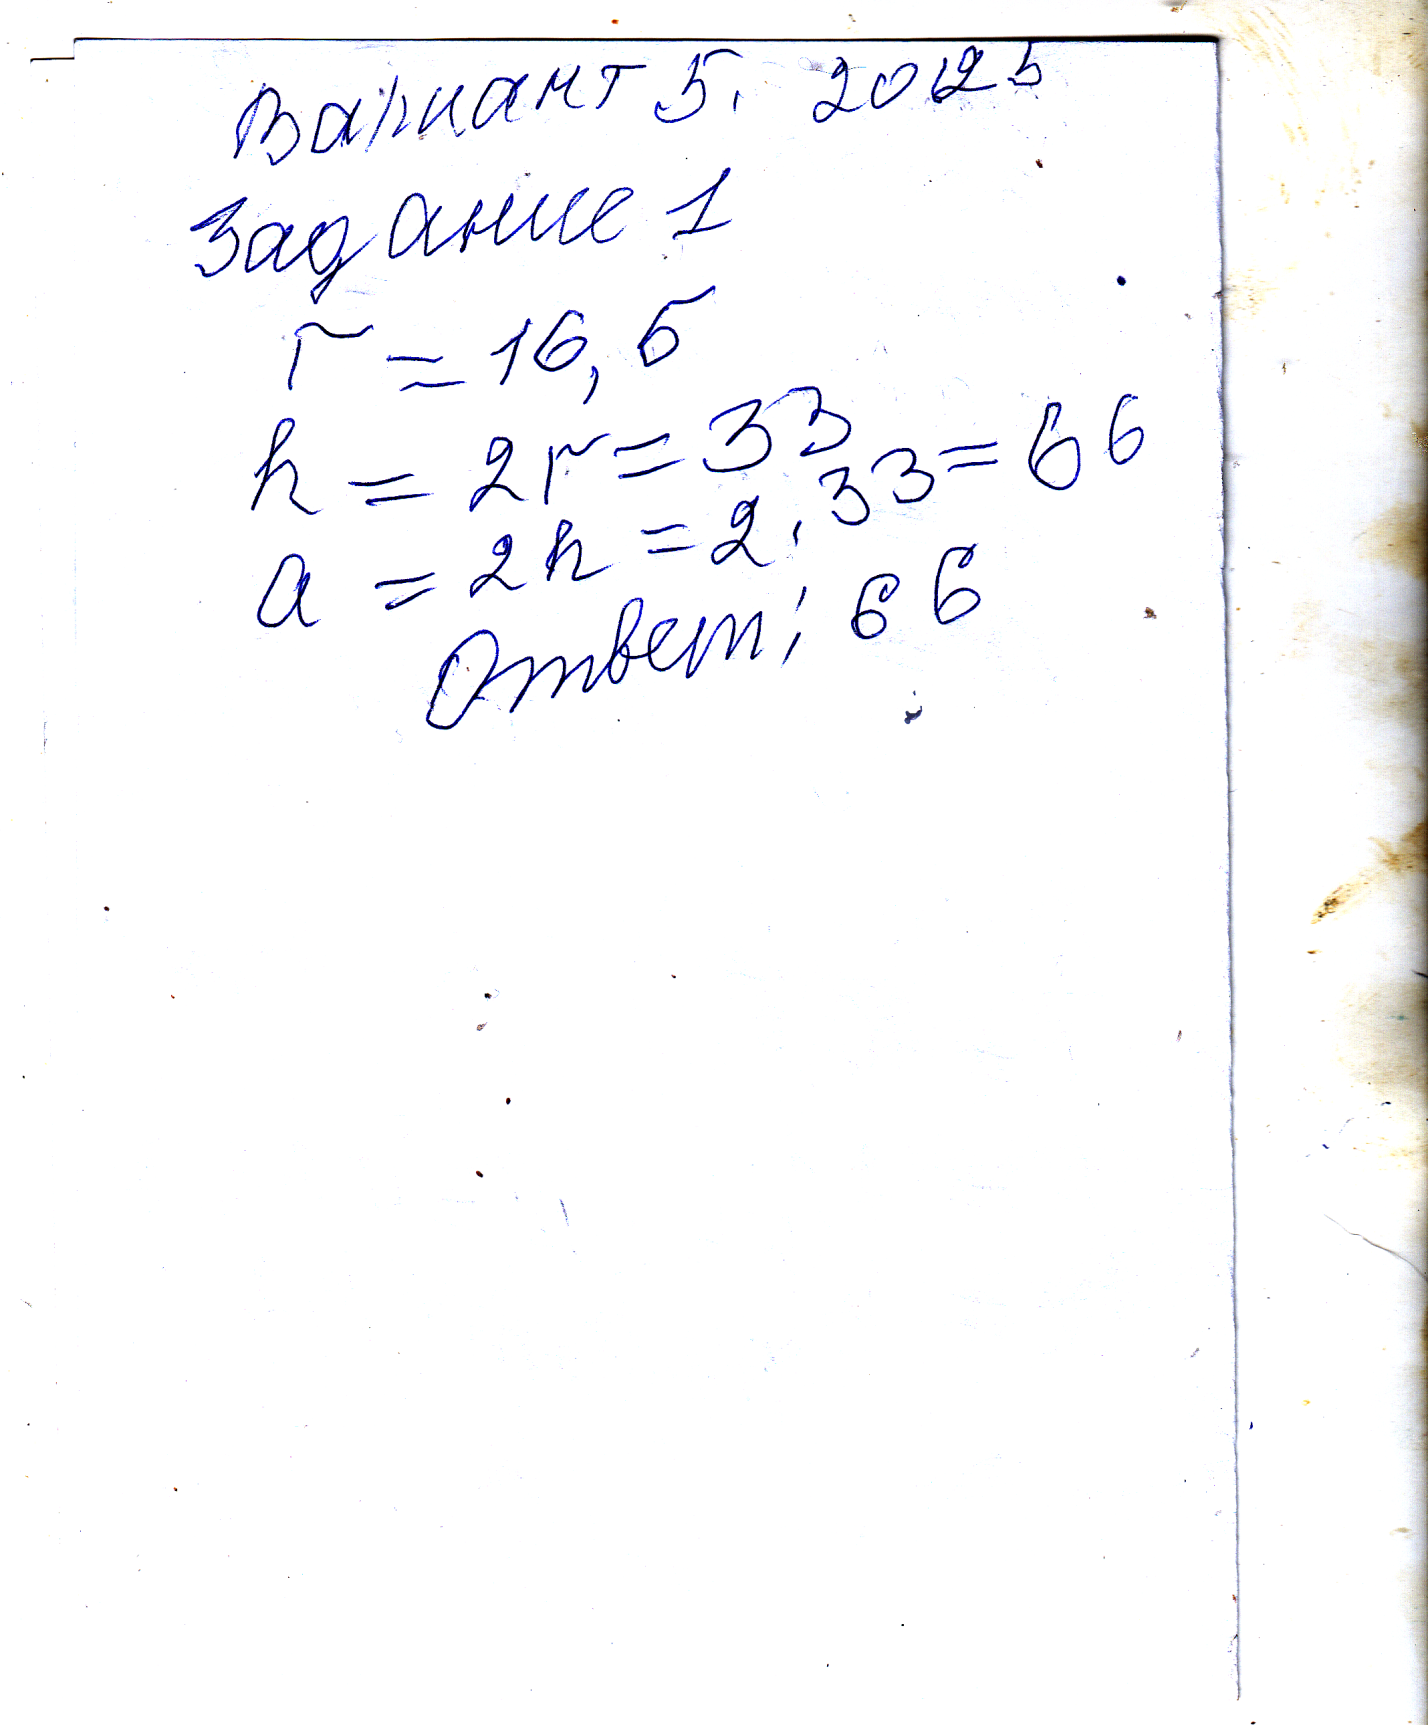 Вариант 5. 2025
Задание 1
r = 16,5
h = 2r = 33
a = 2h = 2·33 = 66
Ответ: 66